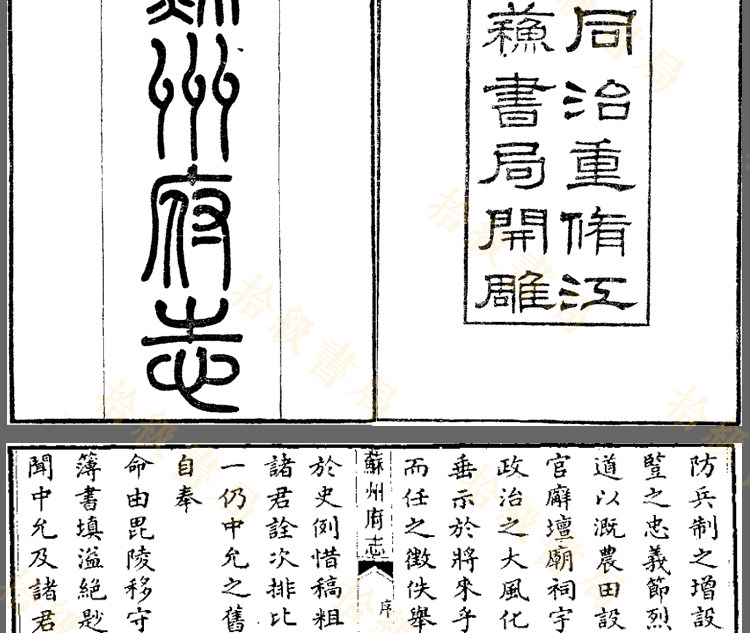 同治重脩江
蘓書局開雕
蘇州府志
防兵制之增設
暨之忠義節烈
道以溉農田設
官廨壇廟祠宇
政治之大風化
垂示於將來乎
而任之徵佚舉
蘇州府志
序
於史例惜稿粗
諸君詮次排比
一仍中允之舊
自奉
命由毘陵移守
簿書填溢絕尟
聞中允及諸君
拾級書局
拾級書局
拾級書局
拾級書局